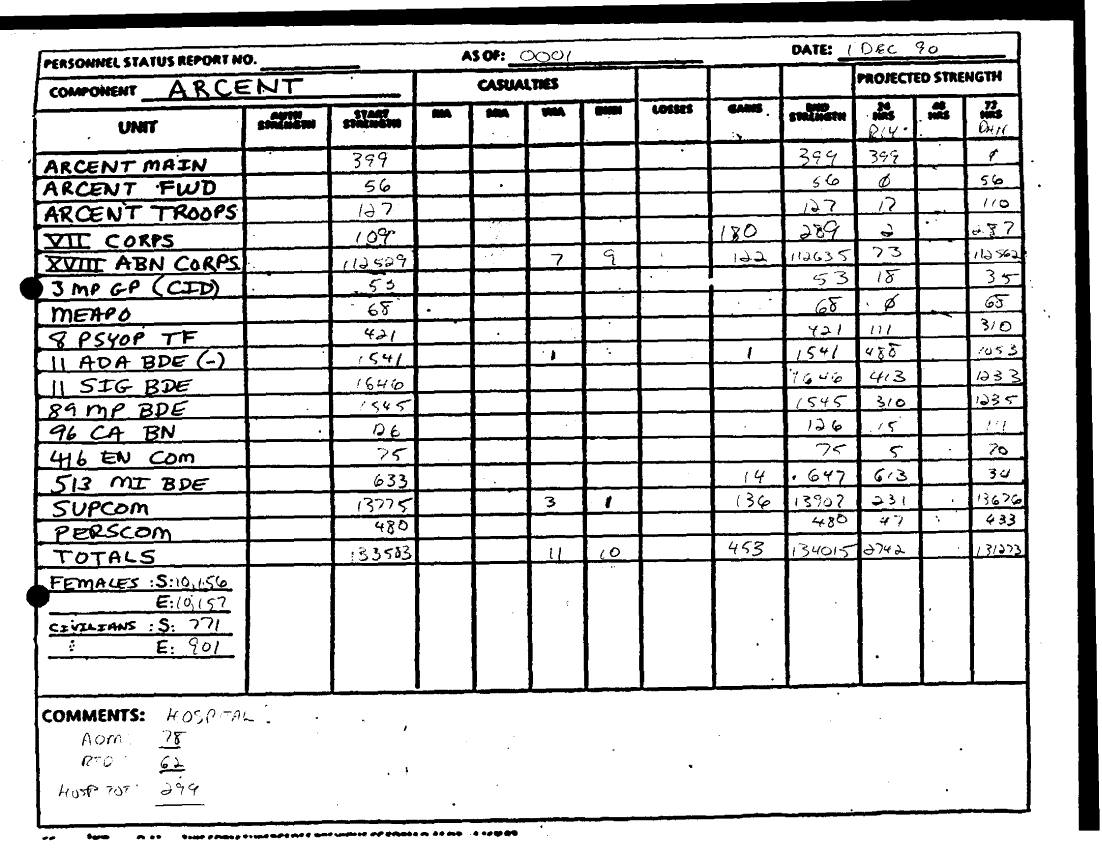 PERSONNEL STATUS REPORT NO. AS OF: 0001 DATE: 1 DEC 90
COMPONENT ARCENT CASUALTIES PROJECTED STRENGTH
UNIT AUTH STRENGTH START STRENGTH KIA MIA WIA LOSSES GAINS END STRENGTH 24 HRS 48 HRS 72 HRS
ARCENT MAIN 399 399 399
ARCENT FWD 56 56 Ø 56
ARCENT TROOPS 127 127 17 110
VII CORPS 109 180 289 2 287
XVIII ABN CORPS 112529 7 9 122 112635 73 112562
3 MP GP (CID) 53 53 18 35
MEAPO 68 68 Ø 68
8 PSYOP TF 421 421 111 310
11 ADA BDE (-) 1541 1 1 1541 488 1053
11 SIG BDE 1646 1646 413 1233
89 MP BDE 1545 1545 310 1235
96 CA BN 126 126 15 111
416 EN COM 75 75 5 70
513 MI BDE 633 14 647 613 34
SUPCOM 13775 3 1 136 13907 231 13676
PERSCOM 480 480 47 433
TOTALS 133583 11 10 453 134015 2742 131273
FEMALES :S:10,156
E:10,157
CIVILIANS :S: 771
: E: 901
COMMENTS: HOSPITAL:
ADM: 78
RTD: 62
HOSP TOT: 299